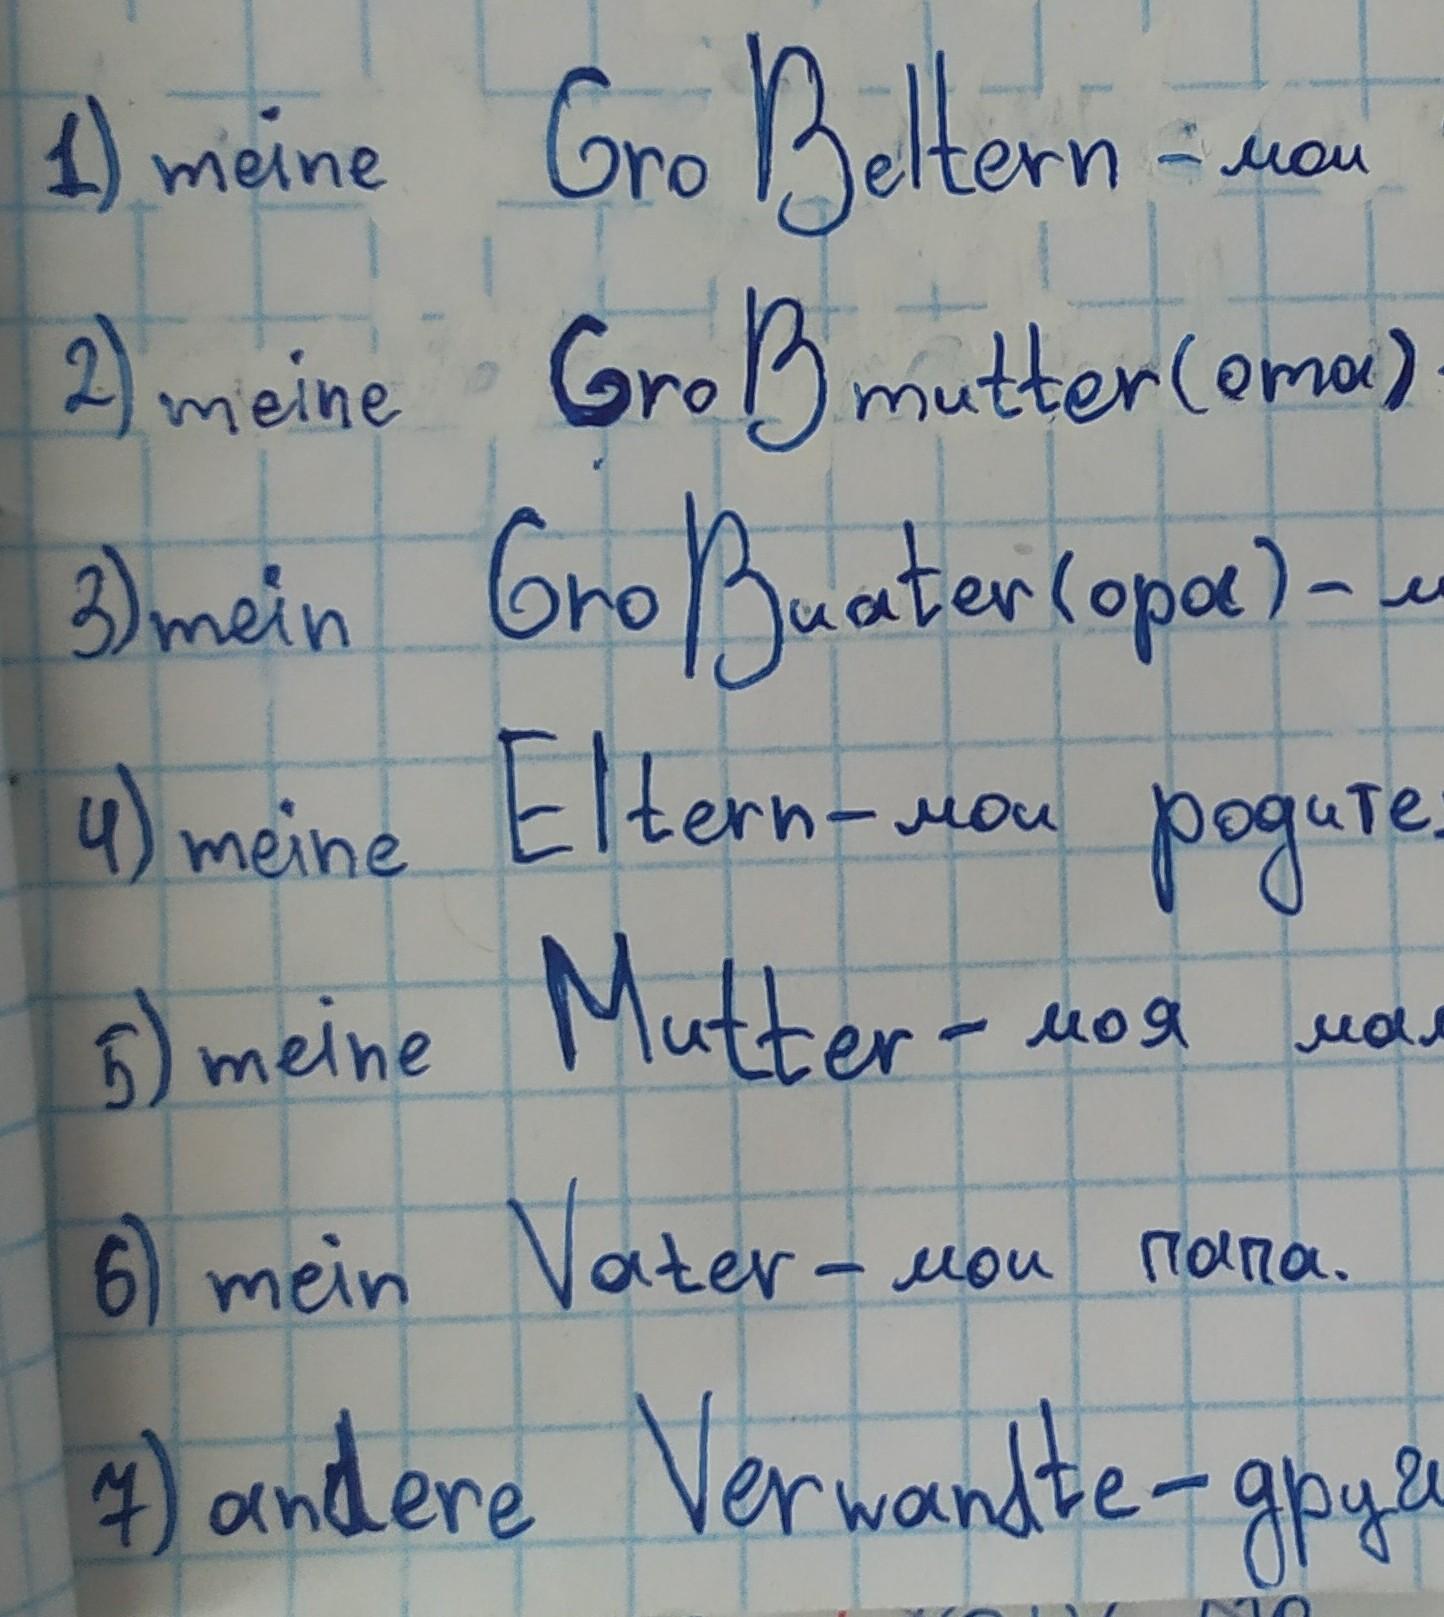 1) meine Großeltern - мои
2) meine Großmutter (oma)
3) mein Großuater (opa) -
4) meine Eltern - мои родите
5) meine Mutter - моя мам
6) mein Vater - мои папа.
7) andere Verwandte - други